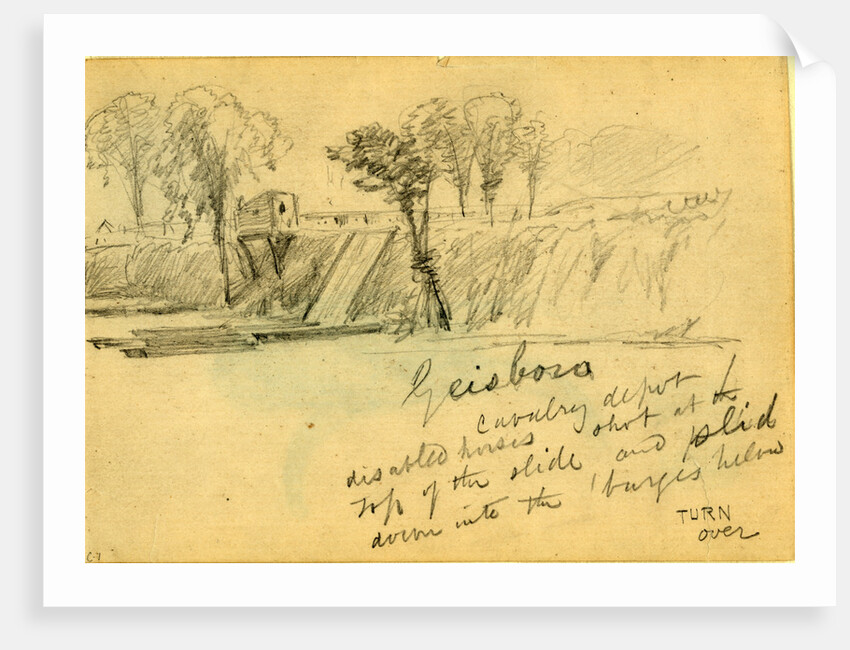 Geisboro
cavalry depot
disabled horses shot at the
top of the slide and slid
down into the barges below
TURN
over
C-7